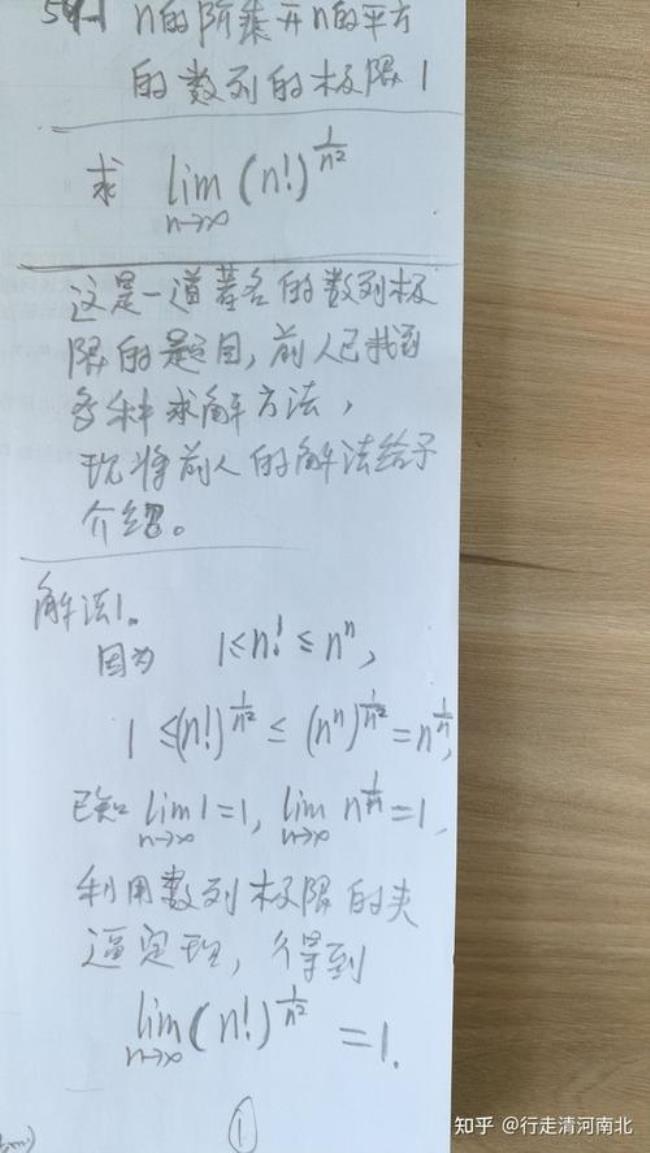 n的阶乘开n的平方
的数列的极限1
求 lim (n!)^{1/n²}
n→∞
这是一道著名的数列极
限的题目,前人已找到
多种求解方法,
现将前人的解法给予
介绍。
解法1。
因为 1≤n!≤nⁿ,
1≤(n!)^{1/n²}≤(nⁿ)^{1/n²}=n^{1/n},
已知 lim 1=1, lim n^{1/n}=1,
n→∞ n→∞
利用数列极限的夹
逼定理,得到
lim (n!)^{1/n²} =1.
n→∞
①
知乎 @行走清河南北